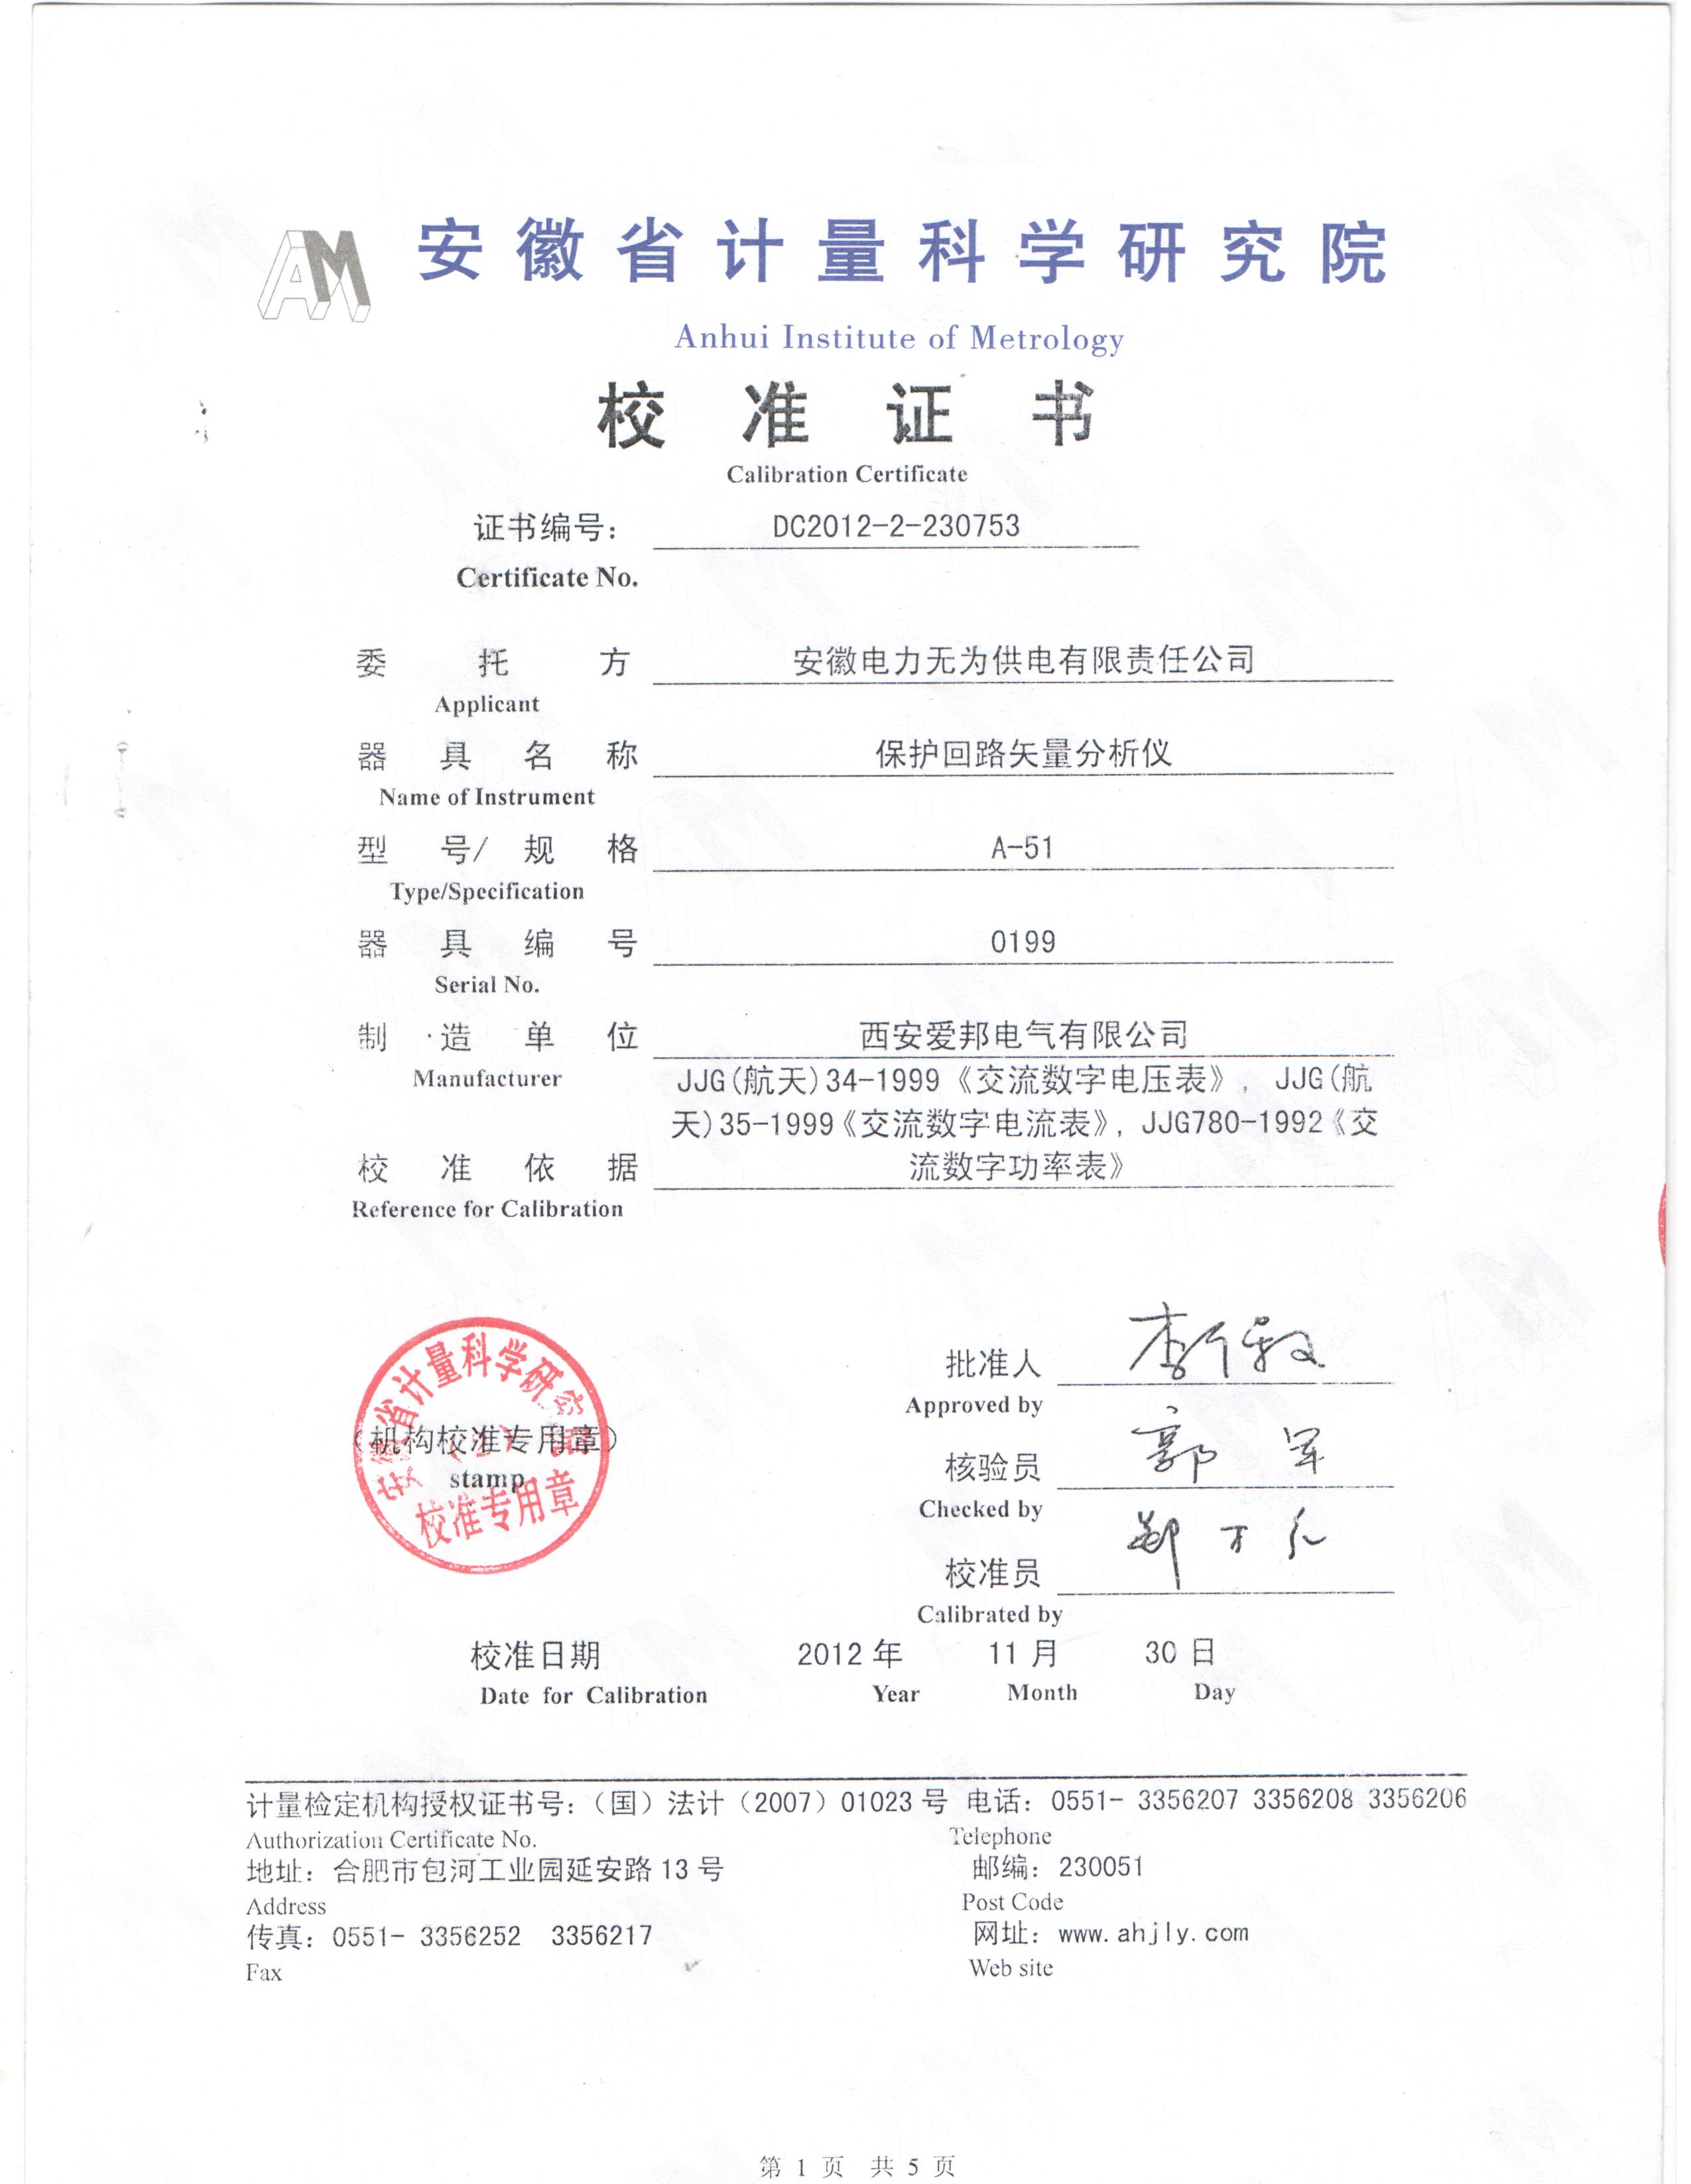 AM
安徽省计量科学研究院
Anhui Institute of Metrology
校准证书
Calibration Certificate
证书编号: DC2012-2-230753
Certificate No.
委托方 安徽电力无为供电有限责任公司
Applicant
器具名称 保护回路矢量分析仪
Name of Instrument
型号/规格 A-51
Type/Specification
器具编号 0199
Serial No.
制造单位 西安爱邦电气有限公司
Manufacturer
JJG(航天)34-1999《交流数字电压表》, JJG(航
天)35-1999《交流数字电流表》, JJG780-1992《交
校准依据 流数字功率表》
Reference for Calibration
安徽省计量科学研究院
(机构校准专用章)
stamp
校准专用章
批准人
Approved by
核验员 郭军
Checked by
校准员
Calibrated by
校准日期 2012年 11月 30日
Date for Calibration Year Month Day
计量检定机构授权证书号:(国)法计(2007)01023号 电话: 0551- 3356207 3356208 3356206
Authorization Certificate No. Telephone
地址: 合肥市包河工业园延安路13号 邮编: 230051
Address Post Code
传真: 0551- 3356252 3356217 网址: www.ahjly.com
Fax Web site
第 1 页 共 5 页